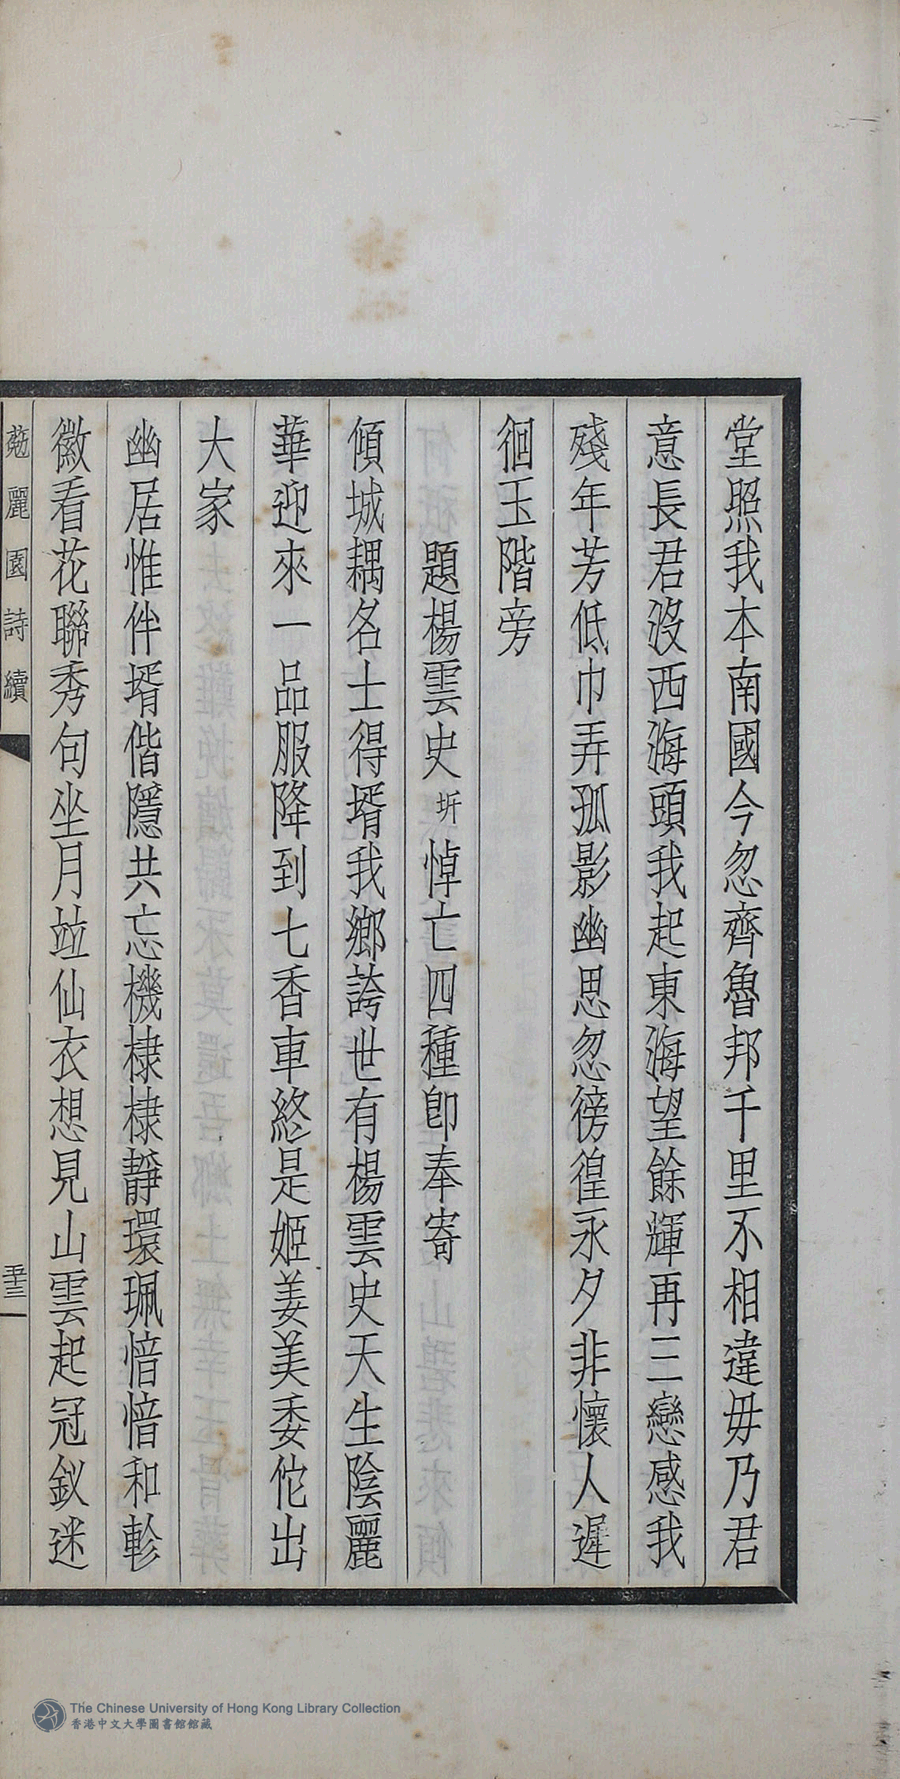 堂照我本南國今忽齊魯邦千里不相違毋乃君
意長君沒西海頭我起東海望餘輝再三戀感我
殘年芳低巾弄孤影幽思忽徬徨永夕非懷人遲
徊玉階旁
題楊雲史圻悼亡四種卽奉寄
傾城耦名士得壻我鄉誇世有楊雲史天生陰麗
華迎來一品服降到七香車終是姬姜美委佗出
大家
幽居惟伴壻偕隱共忘機棣棣靜環珮愔愔和軫
徽看花聯秀句坐月竝仙衣想見山雲起冠釵迷
麗園詩續
五十三
The Chinese University of Hong Kong Library Collection
香港中文大學圖書館館藏